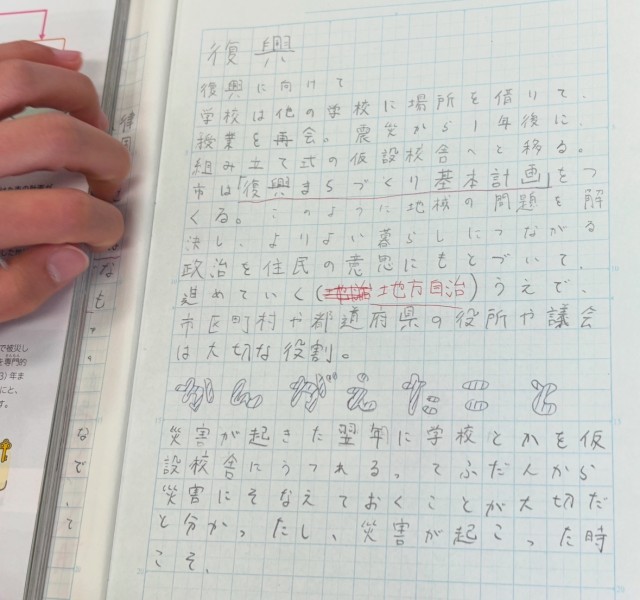 復興
復興に向けて
学校は他の学校に場所を借りて、
授業を再会。震災から1年後に、
組み立て式の仮設校舎へと移る。
市は「復興まちづくり基本計画」をつ
くる。このように地校の問題を解
決し、よりよい暮らしにつながる
政治を住民の意思にもとづいて、
進めていく(地方自治)うえで、
市区町村や都道府県の役所や議会
は大切な役割。
かしがえたこと
災害が起きた翌年に学校とかを仮
設校舎にうつれる。てふだんから
災害にそなえておくことが大切だ
と分かったし、災害が起こった時
こそ、